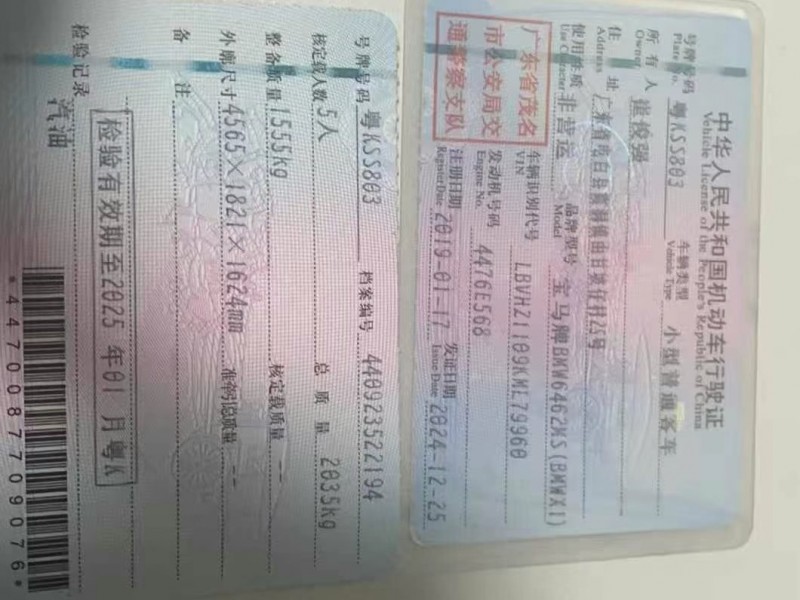 中华人民共和国机动车行驶证
Vehicle License of the People's Republic of China
号牌号码 粤KSS803 车辆类型 小型普通客车
Plate No. Vehicle Type
所有人 崔俊强
Owner
住址
Address
使用性质 非营运 品牌型号 宝马牌BMW6462MS(BMWX1)
Use Character Model
广东省茂名
市公安局交
通警察支队
车辆识别代号 LBVHZ1109KML79960
VIN
发动机号码 4476E568
Engine No.
注册日期 2019-01-17 发证日期 2024-12-25
Register Date Issue Date
号牌号码 粤KSS803 档案编号 440923522194
核定载人数 5人 总质量 2035kg
整备质量 1555kg 核定载质量 --
外廓尺寸 4565×1821×1624mm 准牵引总质量 --
备注
检验有效期至2025年01月粤K
检验记录
汽油
*4470087709076*